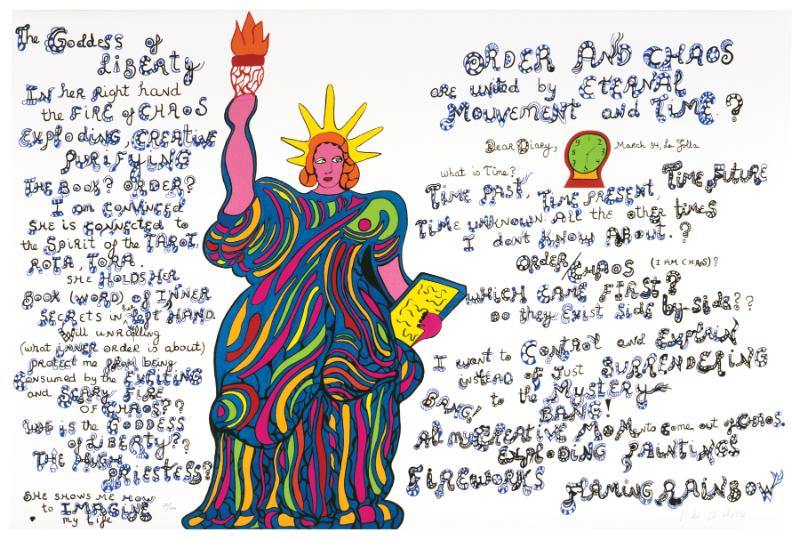 The Goddess of
LIBERTY
IN her Right hand
the FIRE of CHAOS
EXPLODING, CREATIVE
PURIFYING
THE BOOK? ORDER?
I am CONVINCED
SHE is CONNECTED to
the SPIRIT of the TAROT,
ROTA, TORA.
SHE HOLDS HER
BOOK (WORD) OF INNER
SECRETS in LEFT HAND.
Will unrolling
(what INNER order is about)
protect me from being
Consumed by the EXCITING
and SCARY FIRE
OF CHAOS??
Who is the GODDESS
of LIBERTY?
THE HIGH
PRIESTESS?
SHE SHOWS ME HOW
to IMAGINE
my life
ORDER AND CHAOS
are united by ETERNAL
MOUVEMENT and TIME.?
Dear Diary, March 94, La Jolla
what is Time?
TIME PAST, TIME PRESENT, TIME FUTURE
TIME UNKNOWN. ALL the other times
I don't KNOW ABOUT.?
ORDER/CHAOS (I AM CHAOS)?
WHICH CAME FIRST?
DO they EXIST SIDE by SIDE??
I want to CONTROL and EXPLAIN
instead of just SURRENDERING
BANG! to the MYSTERY
BANG!
All my CREATIVE MOMents come out of CHAOS.
EXPLODING PAINTINGS
FIREWORKS FLAMING RAINBOW